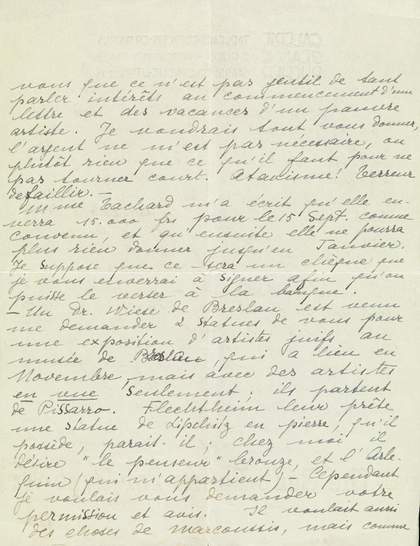 vous que ce n'est pas gentil de tant
parler intérêts au commencement d'une
lettre et des vacances d'un pauvre
artiste. Je voudrais tout vous donner,
l'argent ne m'est pas nécessaire, ou
plutôt rien que ce qu'il faut pour ne
pas tourner court. Atavisme! Terreur
de faillir. —
Mme Tachard m'a écrit qu'elle en-
verra 15.000 frs pour le 15 Sept. comme
convenu, et qu'ensuite elle ne pourra
plus rien donner jusqu'en Janvier.
Je suppose que ce sera un chèque que
je vous enverrai à signer afin qu'on
puisse le verser à la banque.
— Un Dr. Wiese de Breslau est venu
me demander 2 statues de vous pour
une exposition d'artistes juifs au
musée de Breslau, qui a lieu en
Novembre, mais avec des artistes
en vue seulement, ils partent
de Pissarro. Flechtheim leur prête
une statue de Lipchitz en pierre, qu'il
possède, paraît-il; chez moi il
désire "le penseur" bronze, et l'Arle-
quin (qui m'appartient) — Cependant
je voulais vous demander votre
permission et avis. Il voulait aussi
des choses de Marcoussis, mais comme